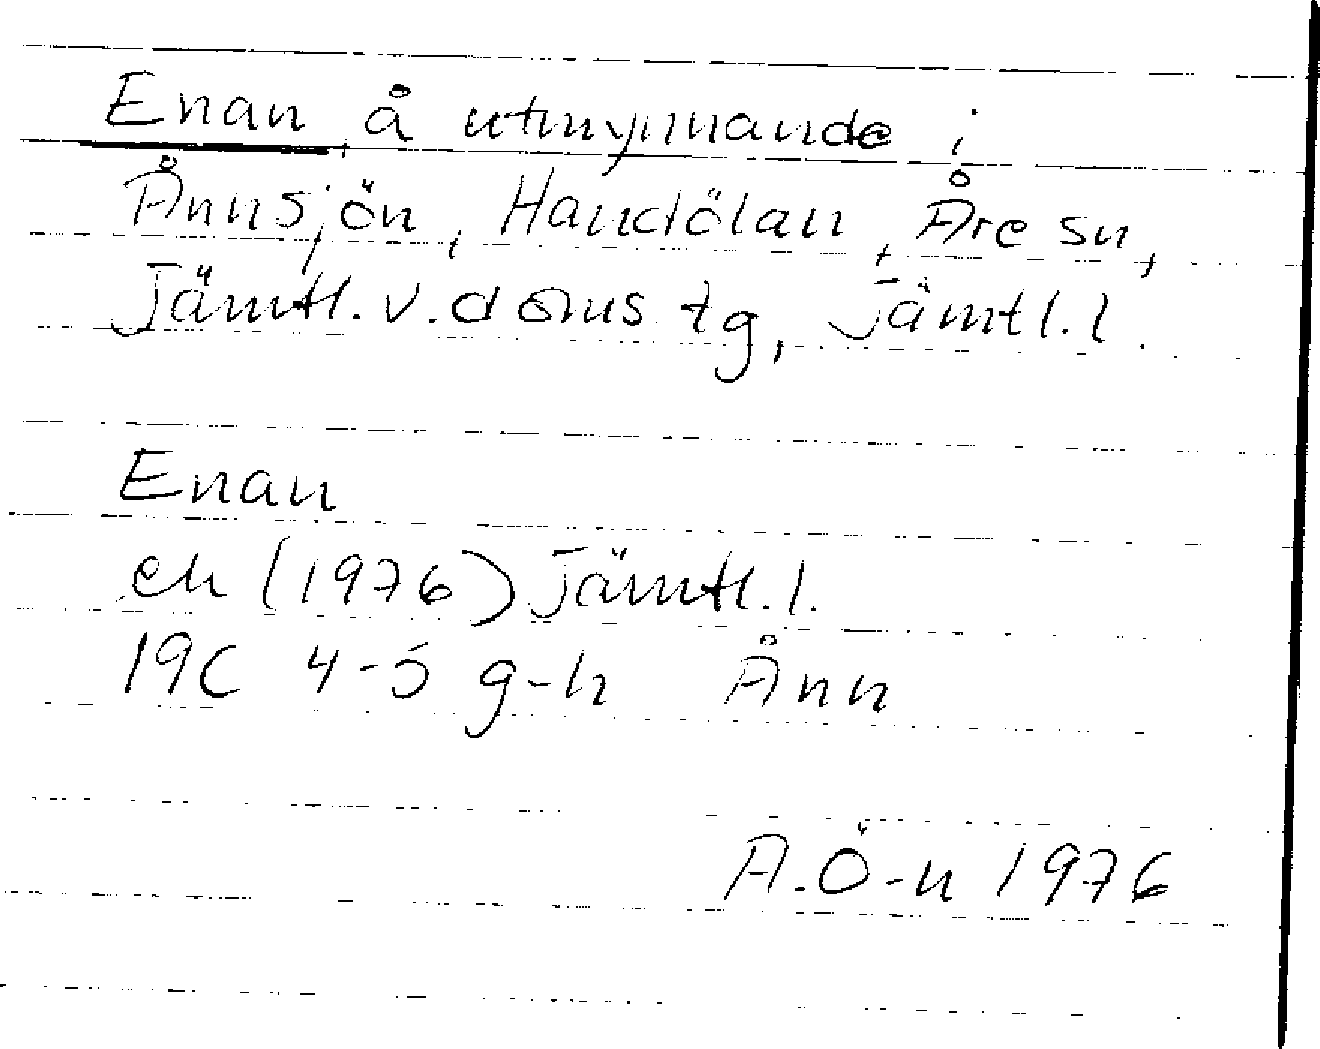 Enan, å utmynnande i
Ånnsjön, Handölan, Åre sn,
Jämtl. v. doms tg, Jämtl. l.
Enan
ek (1976) Jämtl. l.
19C 4-5 g-h Ånn
A. Ö-n 1976